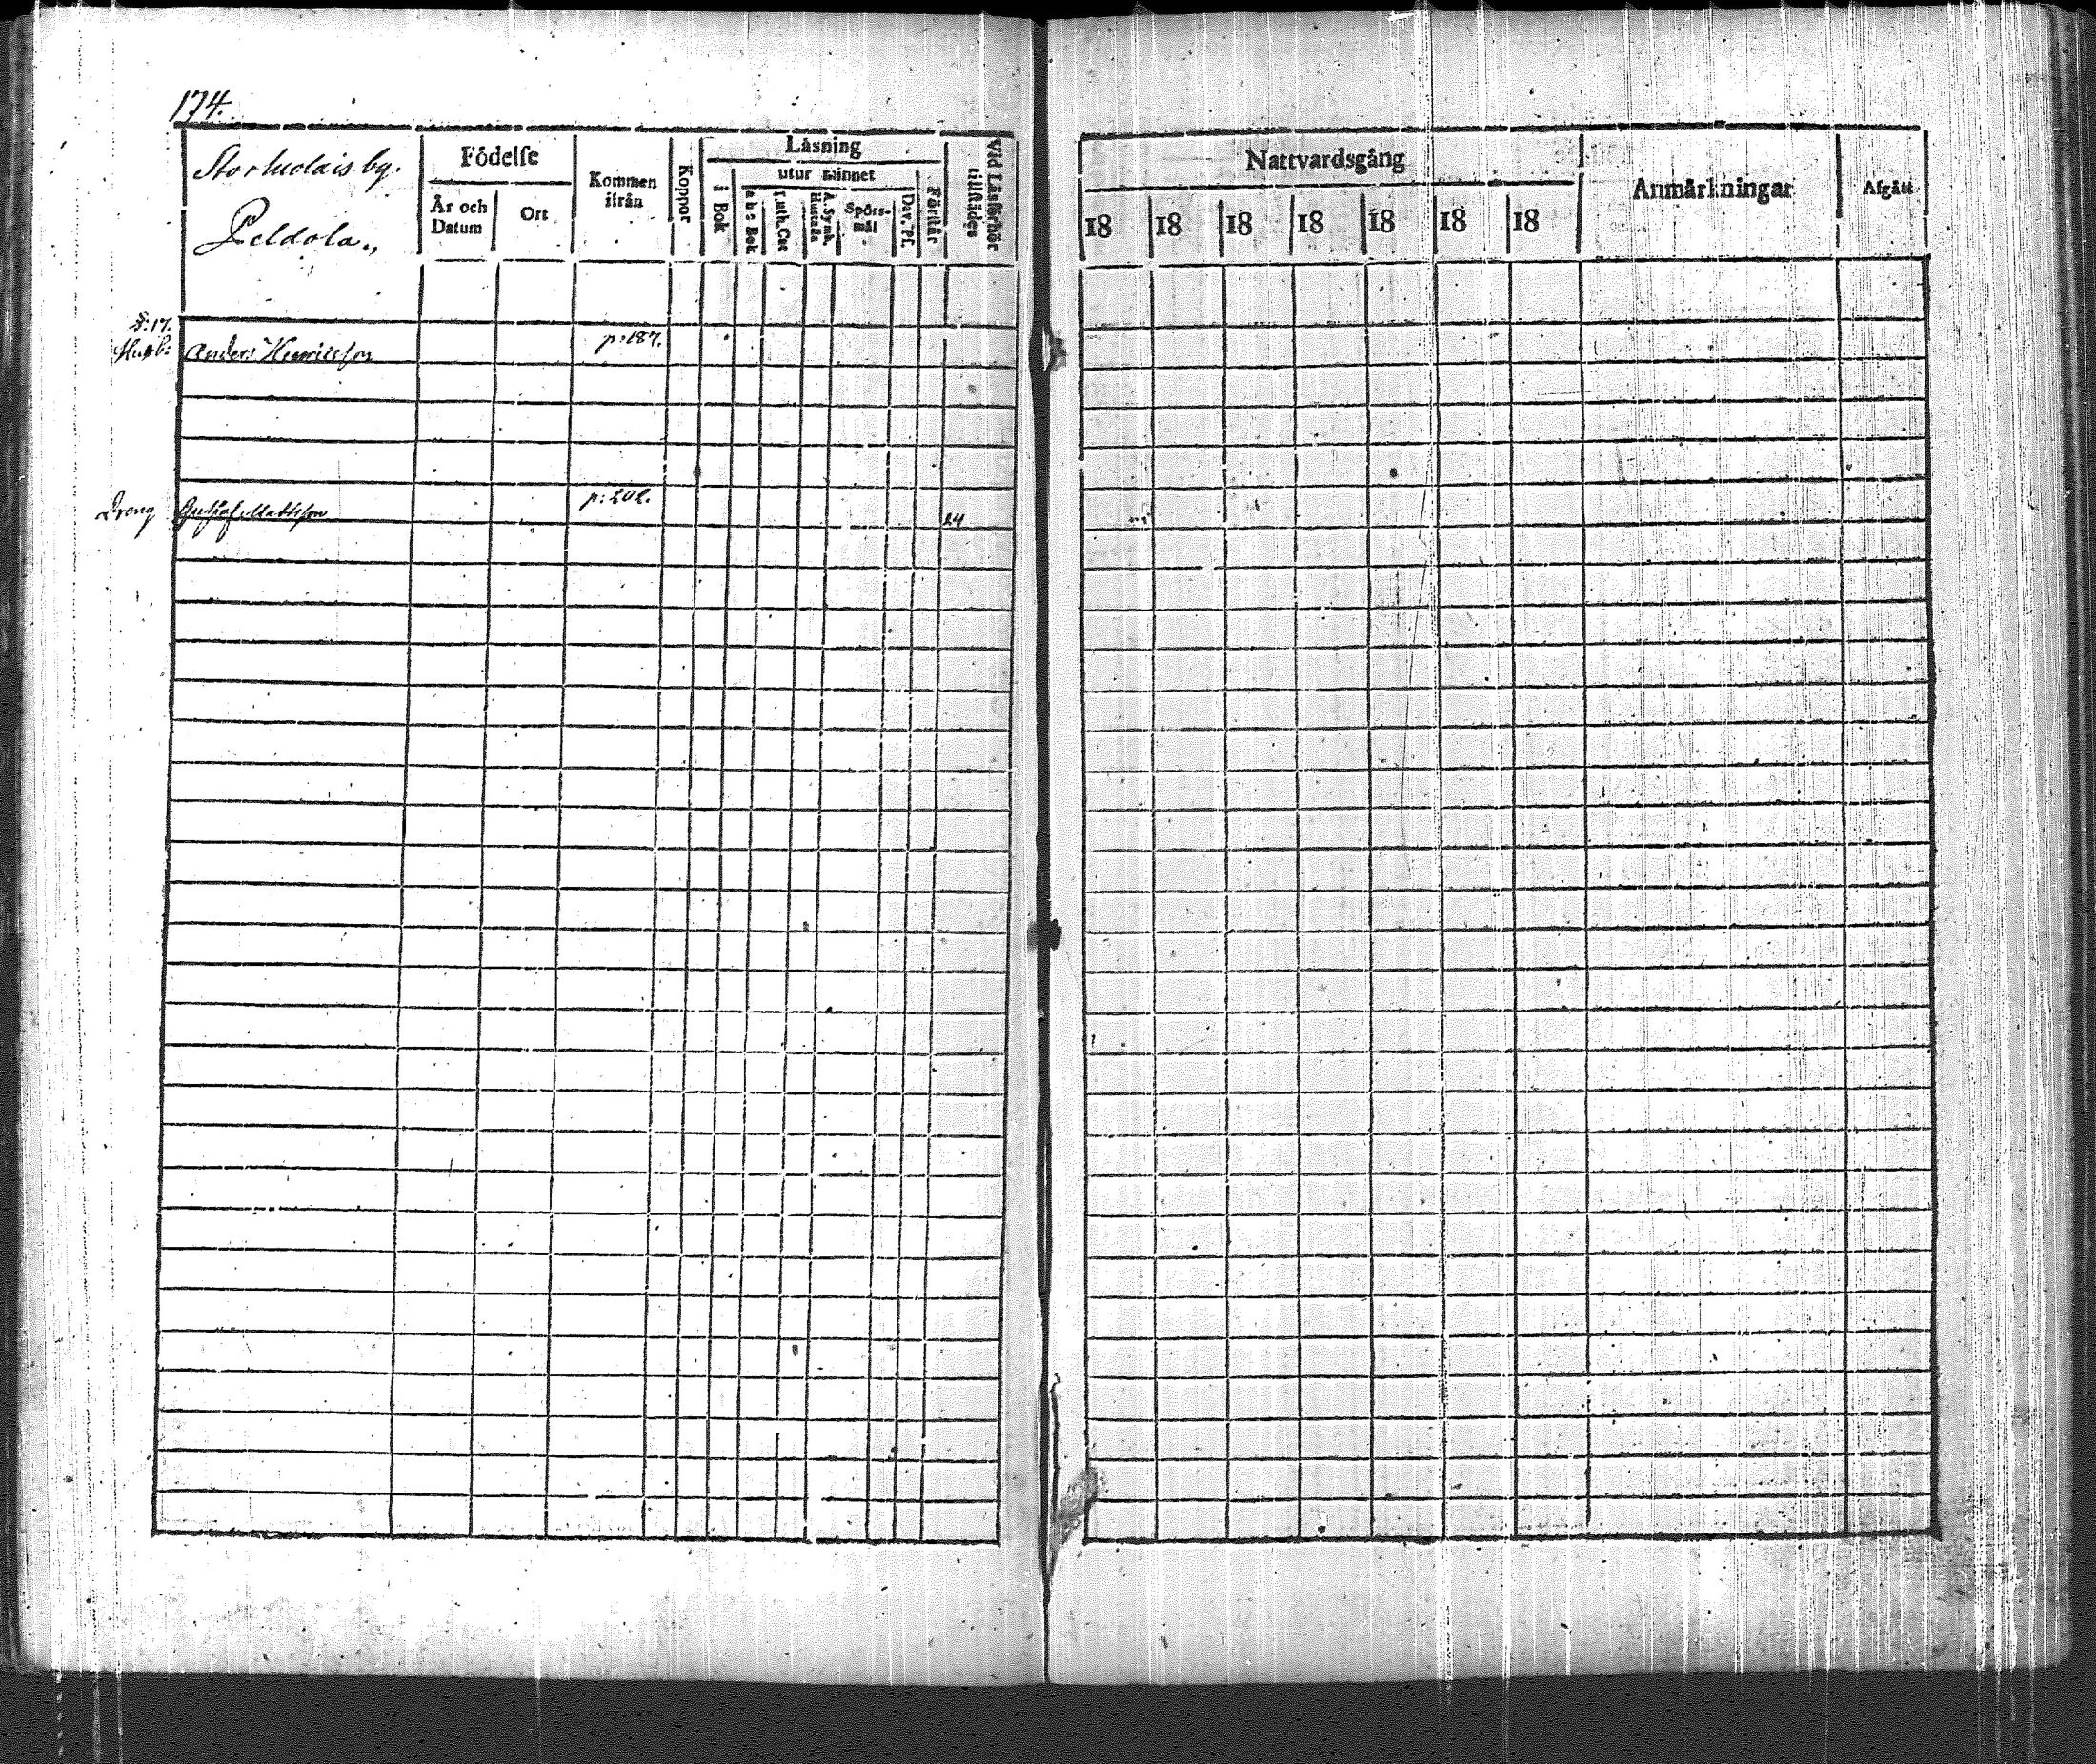 174.
Storluolais by.
Peldola.,
Födelse
År och Datum
Ort
Kommen ifrån
Koppor
Läsning
utur minnet
i Bok
a b c Bok
Luth. Cat
A. Symb. Hustafla
Spörsmål
Dav. Ps.
Förstår
Vid Läsförhör tillstädes
Nattvardsgång
18 18 18 18 18 18 18
Anmärkningar
Afgått
§: 17.
Husb: Anders Henricsson p: 187.
Dreng Gustaf Mattsson p: 202. 24